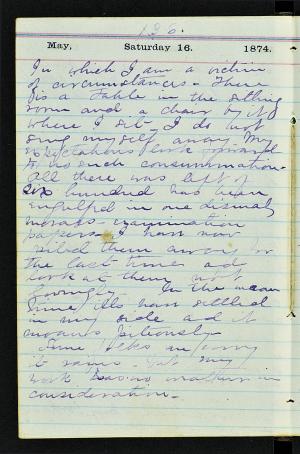 126.
May, Saturday 16. 1874.
In which I am a victim
of circumstances. There
is a table in the sitting
room and a chair by it
where I sit. I do not
sing myself away. My
expectations were
to no such consummation.
All there was left of
six hundred has been
engulfed in one dismal
morass examination
papers. I have now
piled them away for
the last time and
look at them not
lovingly. In the mean
time
in my side and it
moans piteously.
Time
it rains. But my
work has no weather in
consideration.